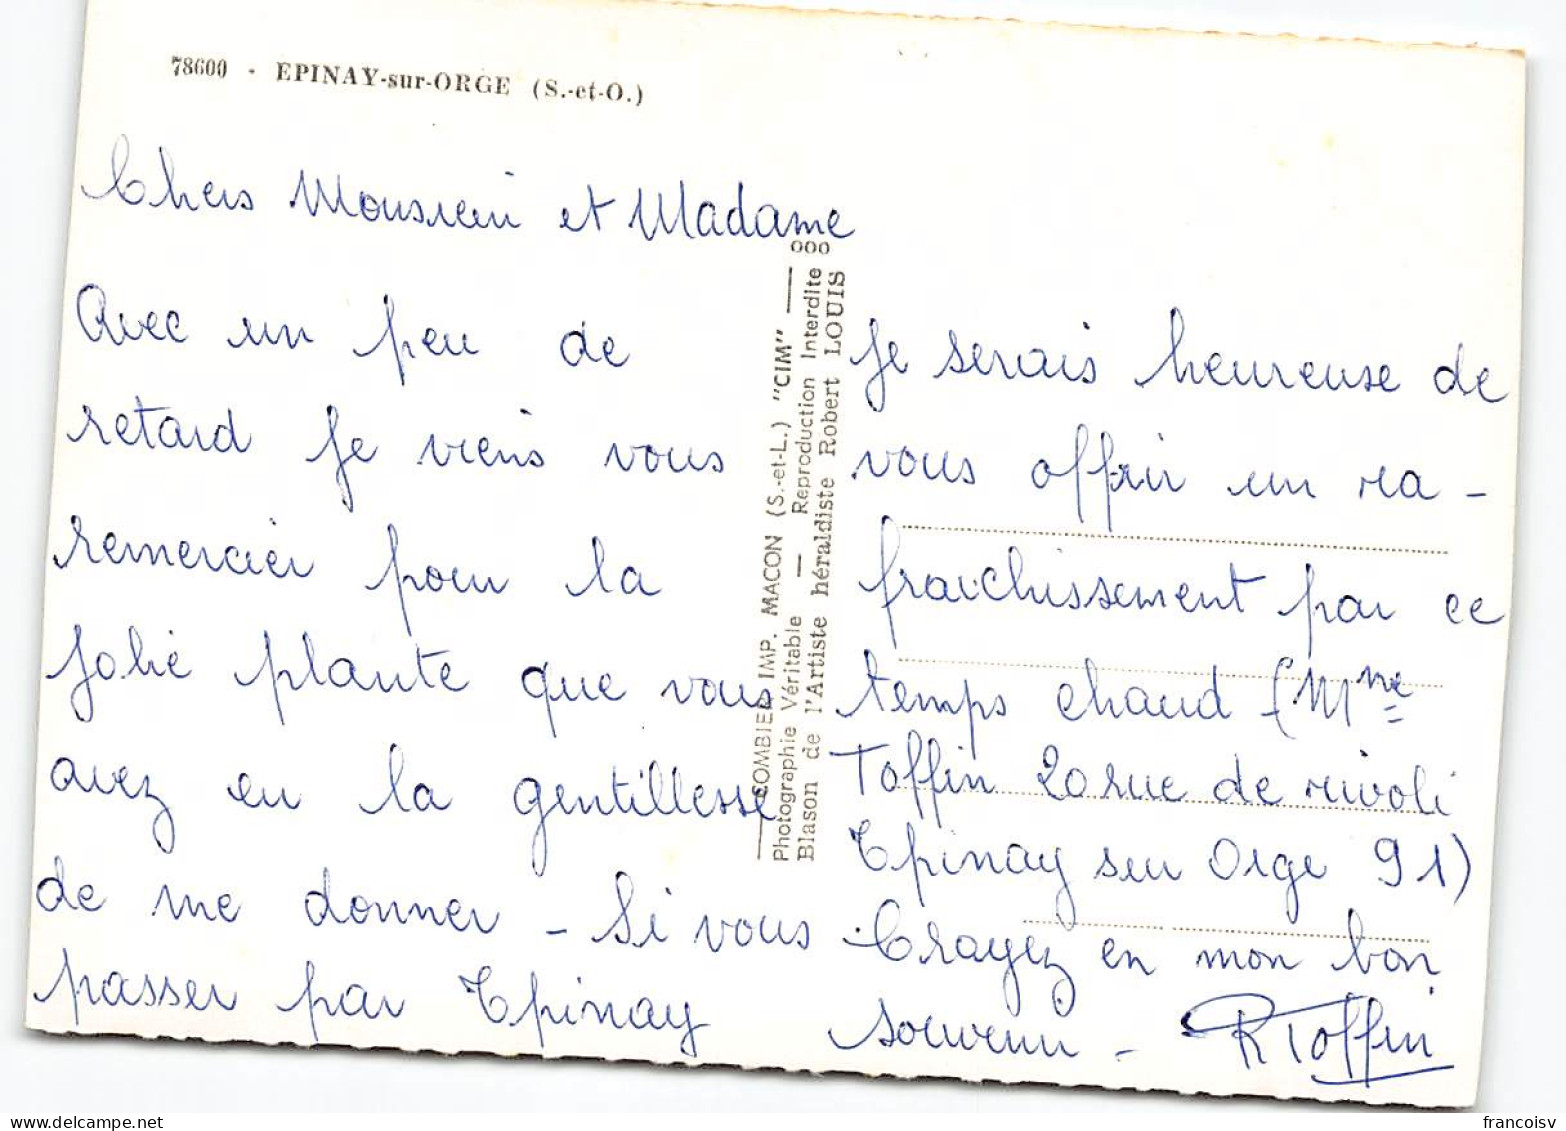 78600 - EPINAY-sur-ORGE (S.-et-O.)
Chers Monsieur et Madame
Avec un peu de
retard je viens vous
remercier pour la
jolie plante que vous
avez eu la gentillesse
de me donner - Si vous
passer par Epinay
COMBIER IMP. MACON (S.-et-L.) "CIM"
Photographie Véritable — Reproduction Interdite
Blason de l'Artiste héraldiste Robert LOUIS
ooo
je serais heureuse de
vous offrir un ra-
fraichissement par ce
temps chaud (Mme
Toffin 20 rue de rivoli
Epinay sur Orge 91)
Crayez en mon bon
souvenir -
R Toffin
francoisv